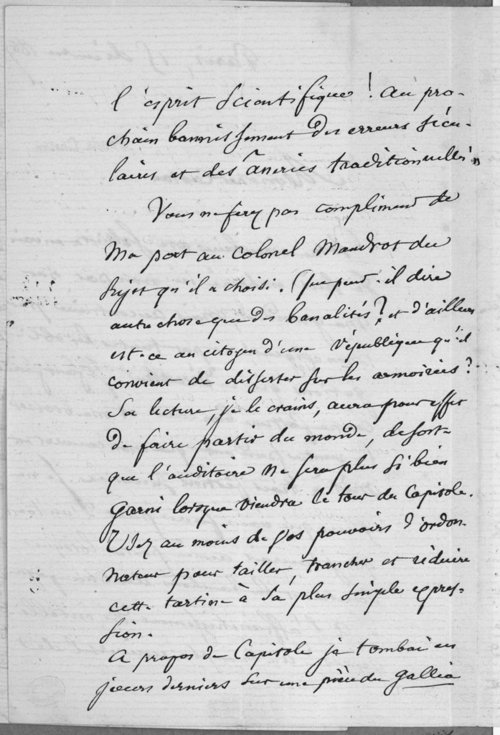 l'esprit scientifique ! Au pro-
chain bannissement des erreurs sécu-
laires et des âneries traditionnelles !"
Vous ne ferez pas compliment de
Ma part au colonel Mandrot du
sujet qu'il a choisi. Que peut-il dire
autre chose que des banalités ? et d'ailleurs
est-ce au citoyen d'une république qu'il
convient de disserter sur les armoiries ?
Sa lecture, je le crains, aura pour effet
de faire partir du monde, de sorte
que l'auditoire ne sera plus si bien
garni lorsque viendra le tour du Capitole.
Usez au moins de vos pouvoirs d'ordon
nateur pour tailler, trancher et réduire
cette tartine à sa plus simple expres-
sion.
A propos de Capitole je tombai ces
jours derniers sur une pièce du Gallia